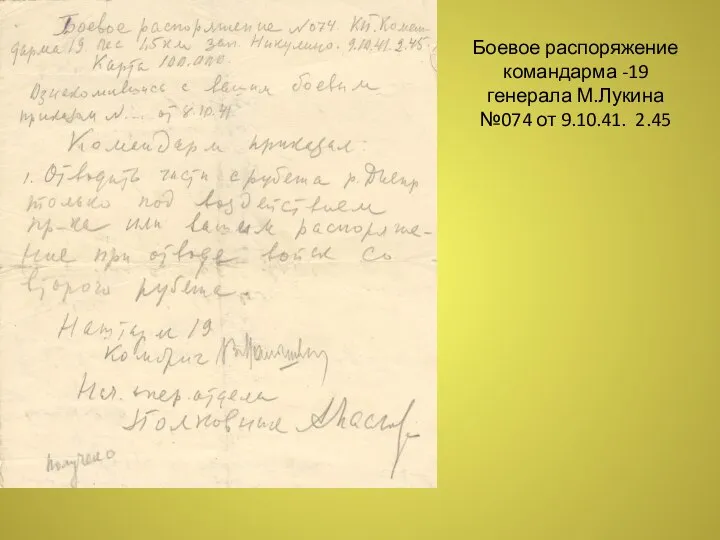 Боевое распоряжение №074. КП. Коман-
дарма 19 лес 1,5 км зап. Никулино. 9.10.41 2.45.
Карта 100.000.
Ознакомившись с вашим боевым
приказом №... от 8.10.41
Командарм приказал:
1. Отводить части с рубежа р. Днепр
только под воздействием
пр-ка или вашим распоряже-
ние при отводе войск со
второго рубежа.
Наштарм 19
Комбриг
Нач. опер. отдела
Полковник
получено
Боевое распоряжение
командарма -19
генерала М.Лукина
№074 от 9.10.41. 2.45